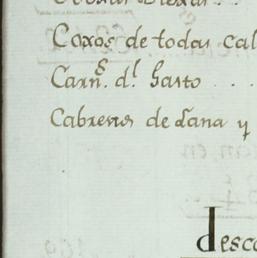 Coxos de todas cal
Carn.s d.l Gasto
Cabreras de lana y
desc